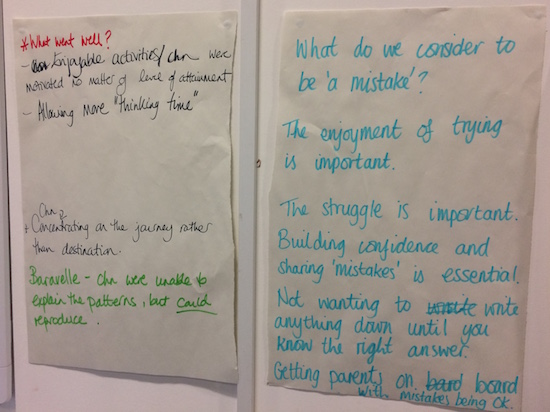 * What went well?
- Enjoyable activities/ chn were
motivated no matter of level of attainment
- Allowing more "thinking time"
Chn
* Concentrating on the journey rather
than destination.
Baravelle - chn were unable to
explain the patterns, but could
reproduce.
What do we consider to
be 'a mistake'?
The enjoyment of trying
is important.
The struggle is important.
Building confidence and
sharing 'mistakes' is essential.
Not wanting to write
anything down until you
know the right answer.
Getting parents on board
with mistakes being ok.